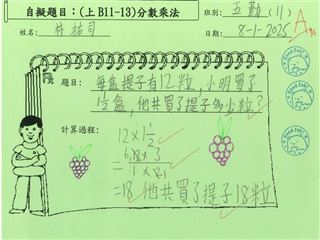 自擬題目：(上 B11-13)分數乘法
班別：五勤(11)
姓名：林祐司
日期：8-1-2025
A
題目：每盒提子有12粒，小明買了
1½盒，他共買了提子多少粒？
計算過程：
12×1½
=12×3
1×2
=18 他共買了提子18粒
Good Job!
Good Job!
Good Job!